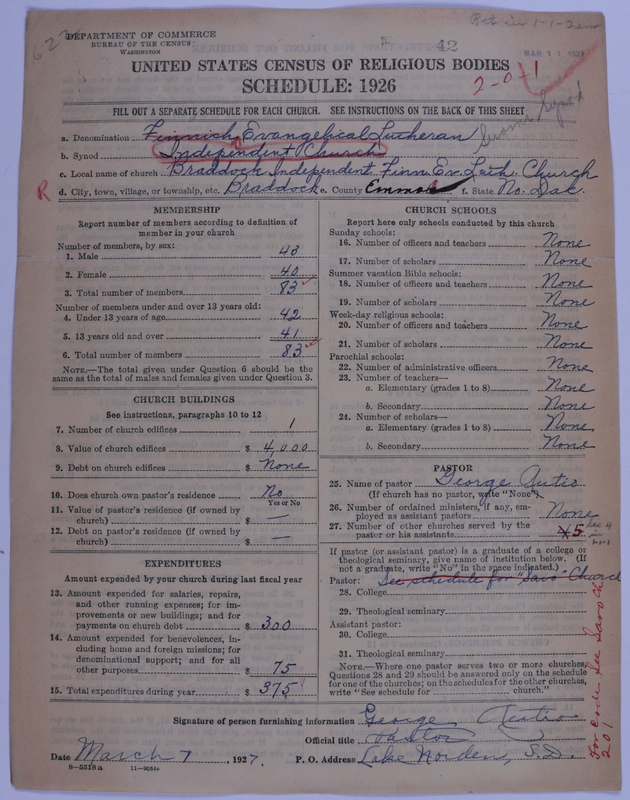 Ret in 1-1-2
DEPARTMENT OF COMMERCE
BUREAU OF THE CENSUS
WASHINGTON
42
MAR 11 1927
UNITED STATES CENSUS OF RELIGIOUS BODIES
SCHEDULE: 1926
2-0-1
FILL OUT A SEPARATE SCHEDULE FOR EACH CHURCH. SEE INSTRUCTIONS ON THE BACK OF THIS SHEET
a. Denomination Finnish Evangelical Lutheran
Synod
b. Synod Independent Church
c. Local name of church Braddock Independent Finn. Ev. Luth. Church
R
d. City, town, village, or township, etc. Braddock e. County Emmons f. State No. Dak.
MEMBERSHIP
Report number of members according to definition of member in your church
Number of members, by sex:
1. Male 43
2. Female 40
3. Total number of members 83
Number of members under and over 13 years old:
4. Under 13 years of age 42
5. 13 years old and over 41
6. Total number of members 83
NOTE.—The total given under Question 6 should be the same as the total of males and females given under Question 3.
CHURCH BUILDINGS
See instructions, paragraphs 10 to 12
7. Number of church edifices 1
8. Value of church edifices $ 4,000
9. Debt on church edifices $ None
10. Does church own pastor's residence No
Yes or No
11. Value of pastor's residence (if owned by church) $ —
12. Debt on pastor's residence (if owned by church) $ —
EXPENDITURES
Amount expended by your church during last fiscal year
13. Amount expended for salaries, repairs, and other running expenses; for improvements or new buildings; and for payments on church debt $ 300
14. Amount expended for benevolences, including home and foreign missions; for denominational support; and for all other purposes $ 75
15. Total expenditures during year $ 375
CHURCH SCHOOLS
Report here only schools conducted by this church
Sunday schools:
16. Number of officers and teachers None
17. Number of scholars None
Summer vacation Bible schools:
18. Number of officers and teachers None
19. Number of scholars None
Week-day religious schools:
20. Number of officers and teachers None
21. Number of scholars None
Parochial schools:
22. Number of administrative officers None
23. Number of teachers—
a. Elementary (grades 1 to 8) None
b. Secondary None
24. Number of scholars—
a. Elementary (grades 1 to 8) None
b. Secondary None
PASTOR
25. Name of pastor George Autio
(If church has no pastor, write "None")
26. Number of ordained ministers, if any, employed as assistant pastors None
27. Number of other churches served by the pastor or his assistants 5
If pastor (or assistant pastor) is a graduate of a college or theological seminary, give name of institution below. (If not a graduate, write "No" in the space indicated.)
Pastor: See schedule for "Savo" Church
28. College
29. Theological seminary
Assistant pastor:
30. College
31. Theological seminary
NOTE.—Where one pastor serves two or more churches, Questions 28 and 29 should be answered only on the schedule for one of the churches; on the schedules for the other churches, write "See schedule for church."
For code see Savo Ch. 201
Signature of person furnishing information George Autio
Official title Pastor
Date March 7, 1927. P. O. Address Lake Norden, S.D.
8—5518a 11—9054